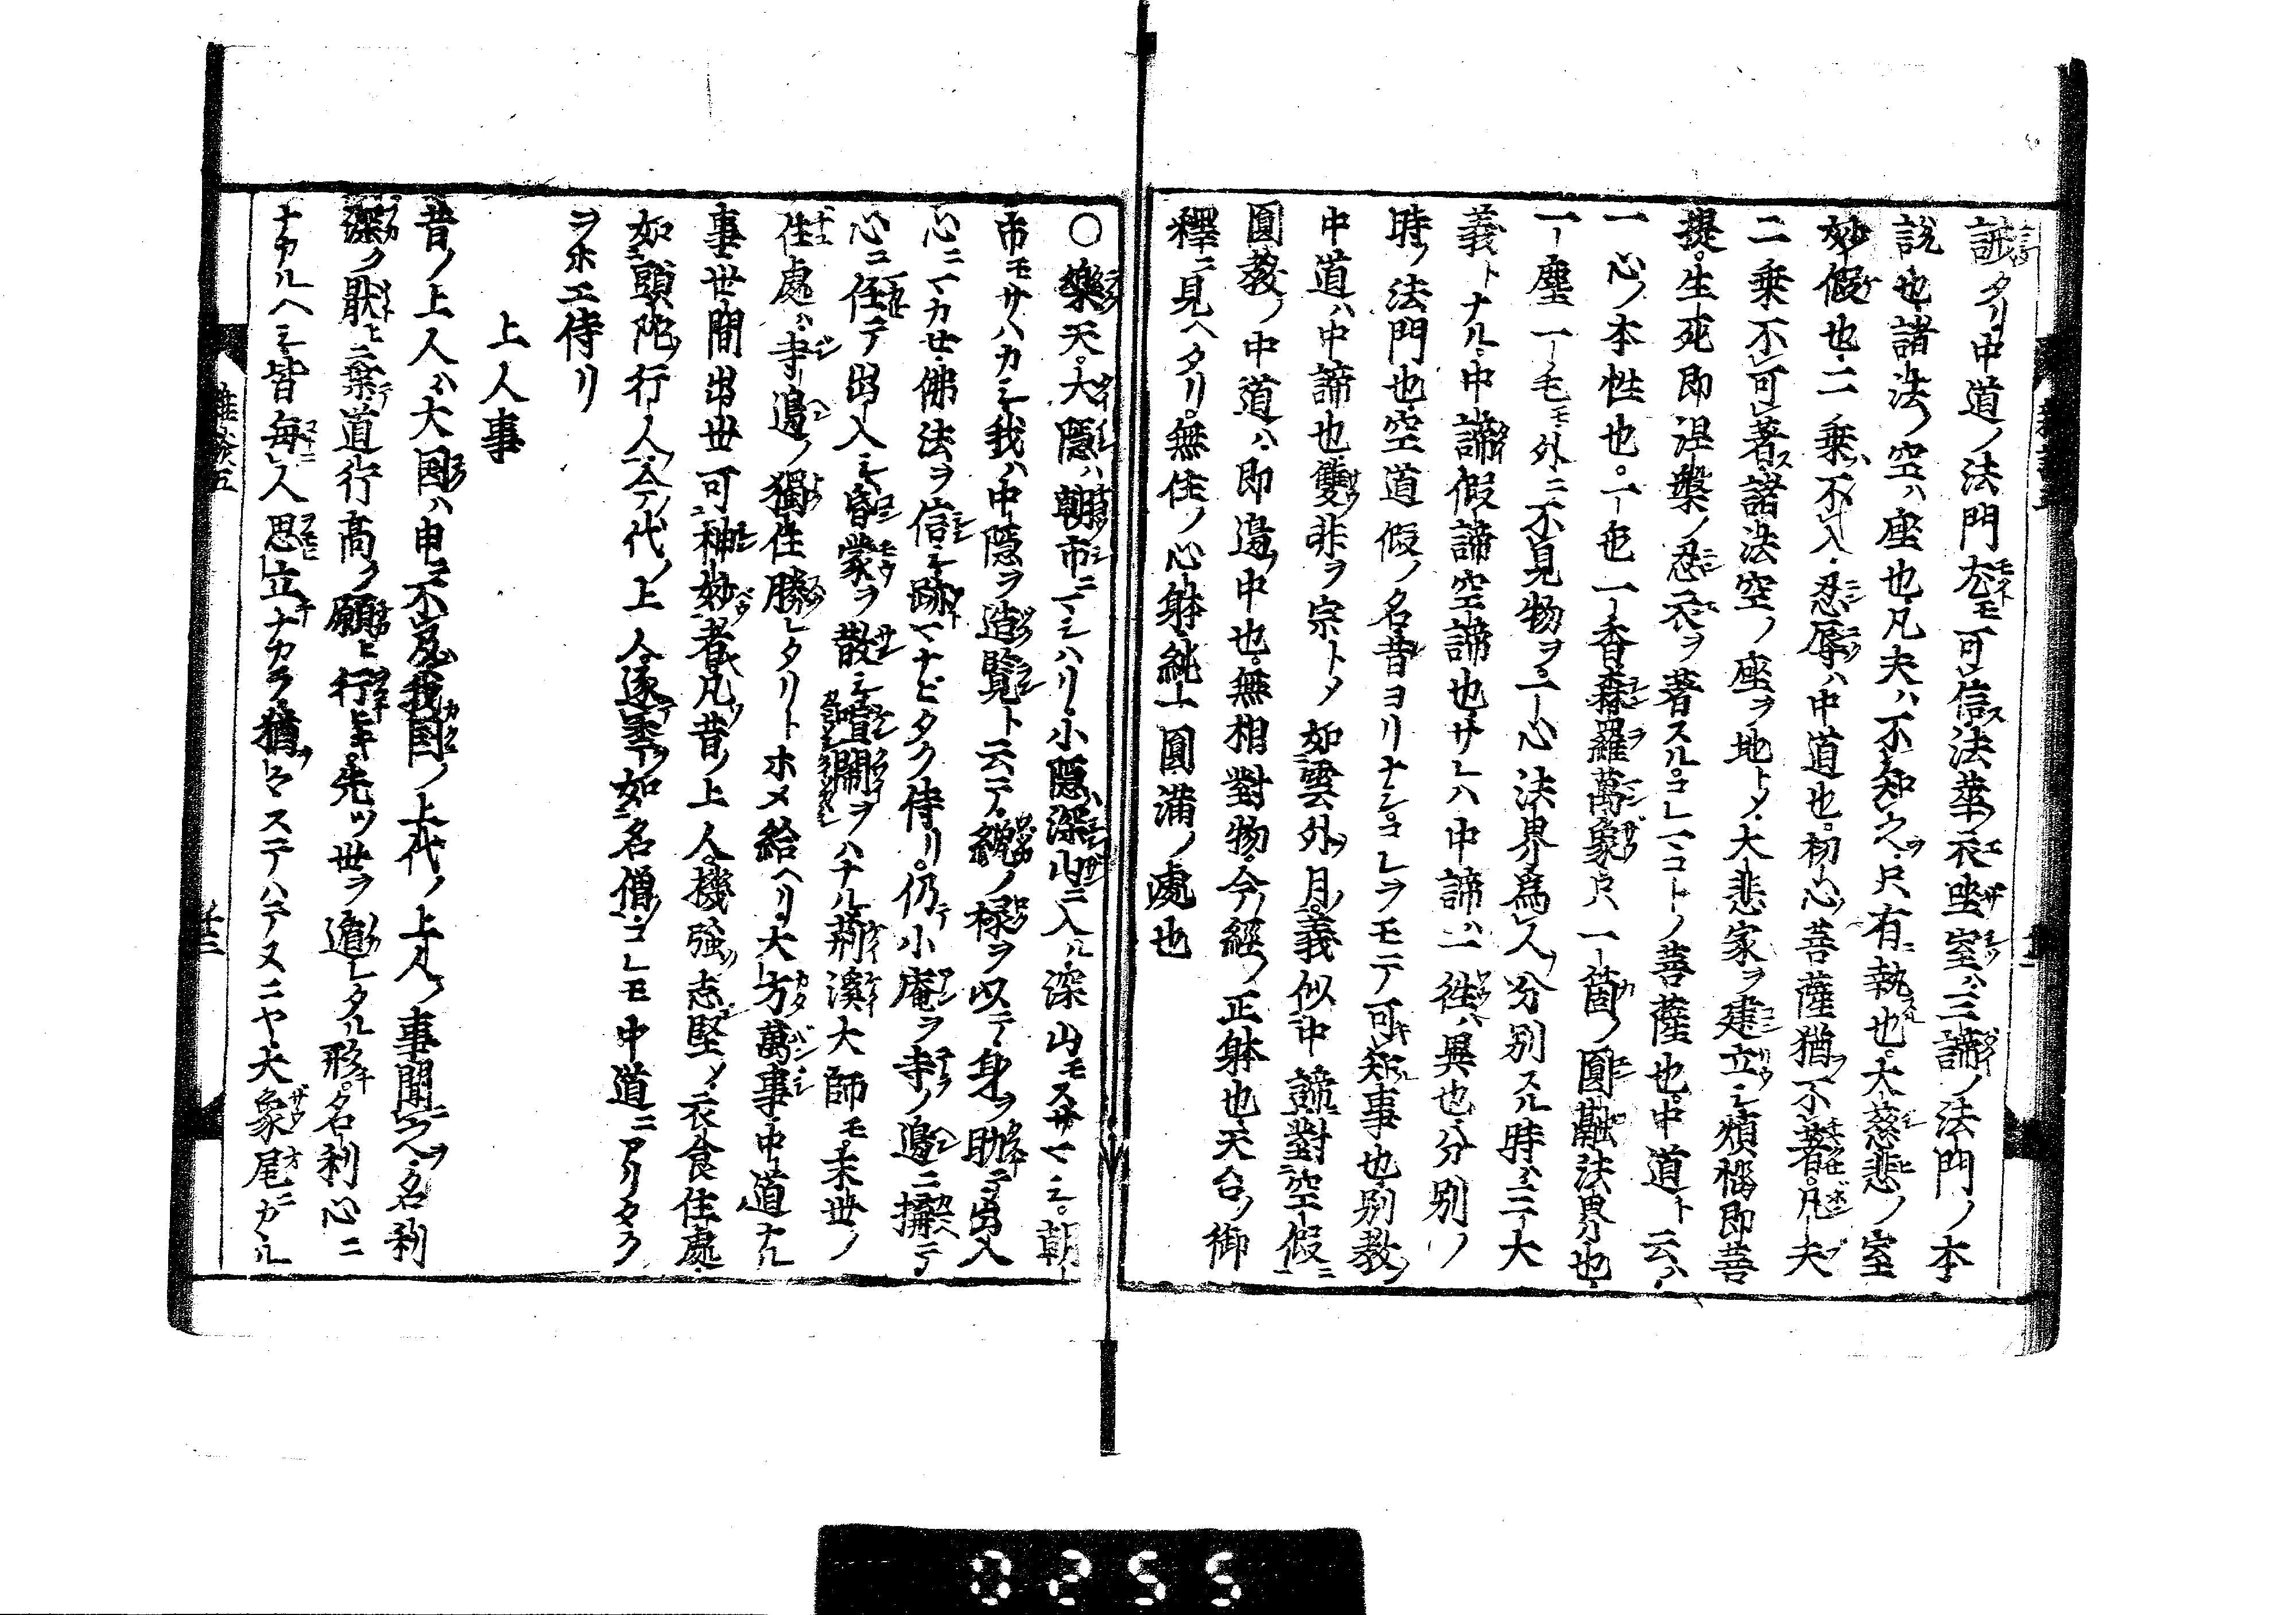 誡タリ中道ノ法門尤モ可信法華ノ衣座室ハ三諦ノ法門ノ本
説也諸法ノ空ハ座也凡夫ハ不知之只有執也大慈悲ノ室
妙假也二乗ハ不入忍辱ハ中道也初心菩薩猶不著凡夫
二乗不可著諸法空ノ座ヲ地トメ大悲家ヲ建立シ煩惱即菩
提生死即涅槃ノ忍衣ヲ著スルコレマコトノ菩薩也中道ト云ハ
一心ノ本性也一色一香森羅萬象只一箇ノ圓融法界也
一塵一毛モ外ニ不見物ヲ一心法界爲人分別スル時ハ三大
義トナル中諦假諦空諦也サレハ中諦ハ一徃ハ異也分別ノ
時ノ法門也空道假ノ名昔ヨリナシコレヲモテ可知事也別教ノ
中道ハ中諦也雙非ヲ宗トメ如雲外月義似中諦對空假ニ
圓教ノ中道ハ即邉ノ中也無相對物今經ノ正躰也天台ノ御
釋ニ見ヘタリ無住ノ心躰純一圓滿ノ處也
○樂天大隱ハ朝市ニマシハリ小隱深山ニ入ル深山モスサマシ朝
市モサハカシ我ハ中隱ヲ造覧ト云テ纔ノ禄ヲ以テ身ヲ助テ出入
心ニマカせ佛法ヲ信シ跡マナビタク侍リ仍小庵ヲ寺ノ邉ニ搆テ
心ニ任テ出入シ昏蒙ヲ散シ喧閙ヲハナル荊溪大師モ末世ノ
住處ハ寺邊ノ獨住勝レタリトホメ給ヘリ大方萬事中道ナル
事世間出世可神妙者凡昔ノ上人機強志堅メ衣食住處
如頭陀行人今ノ代ノ上人逐季如名僧コレモ中道ニアリタク
ヲホエ侍リ
上人事
昔ノ上人ハ大國ハ申ニ不及我国ノ上代ノ上人ノ事聞之名利
深ク猒ヒ棄テ道行高ノ願ヒ行ヒキ先ツ世ヲ遁レタル形チ名利心ニ
ナカルヘシ皆毎人思立ナカラ猶々ステハテヌニヤ大象尾ニカヽル
雜談五
0255